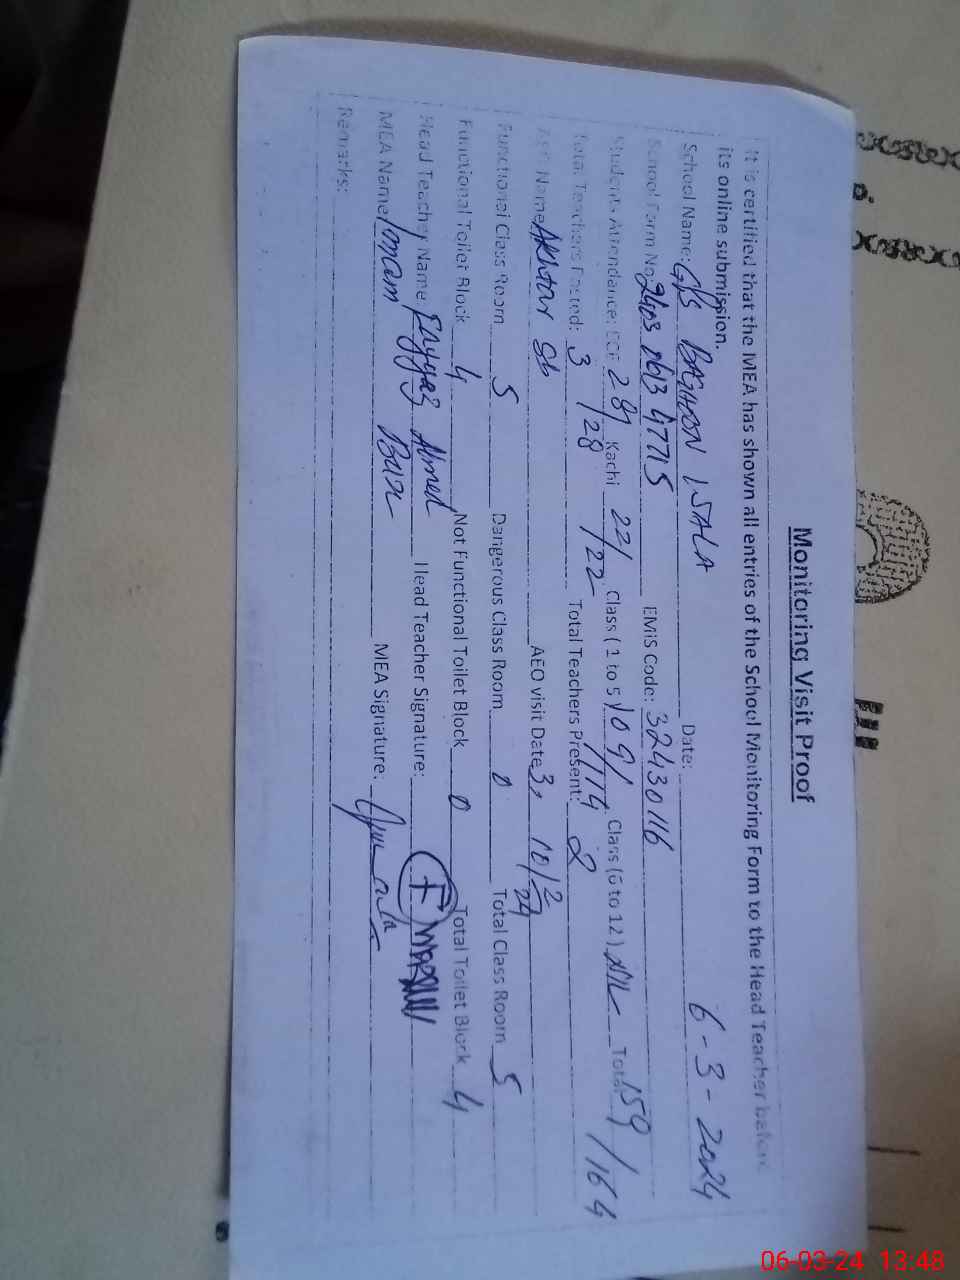 Monitoring Visit Proof
It is certified that the MEA has shown all entries of the School Monitoring Form to the Head Teacher before
its online submission.
School Name: G/PS BAGHOON WALA Date: 6-3-2024
School Form No. 2403 0613 47715 EMIS Code: 32430116
Students Attendance: ECE 28/28 Kachi 22/22 Class (1 to 5) 109/114 Class (6 to 12) NIL Total 159/164
Total Teachers Posted: 3 Total Teachers Present: 2
AEO Name Akhtar Sb AEO visit Date 3, 10/2/24
Functional Class Room 5 Dangerous Class Room 0 Total Class Room 5
Functional Toilet Block 4 Not Functional Toilet Block 0 Total Toilet Block 4
Head Teacher Name: Fayyaz Ahmed Head Teacher Signature:
MEA Name Imam Bux MEA Signature:
Remarks:
06-03-24 13:48